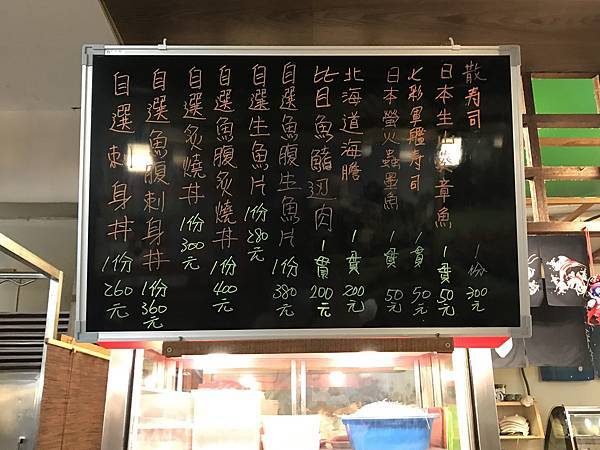 散寿司 1份 300元
日本生山葵章魚 1貫 50元
七彩軍艦寿司 1貫 50元
日本螢火蟲墨魚 1貫 50元
北海道海膽 1貫 200元
比目魚鰭边肉 1貫 200元
自選魚腹生魚片 1份 380元
自選生魚片 1份 280元
自選魚腹炙燒丼 1份 400元
自選炙燒丼 1份 300元
自選魚腹刺身丼 1份 360元
自選刺身丼 1份 260元